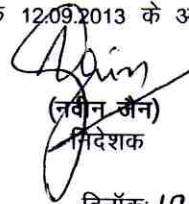 क 12.09.2013 के अ
(नवीन जैन)
निदेशक
दिनाँक: 19